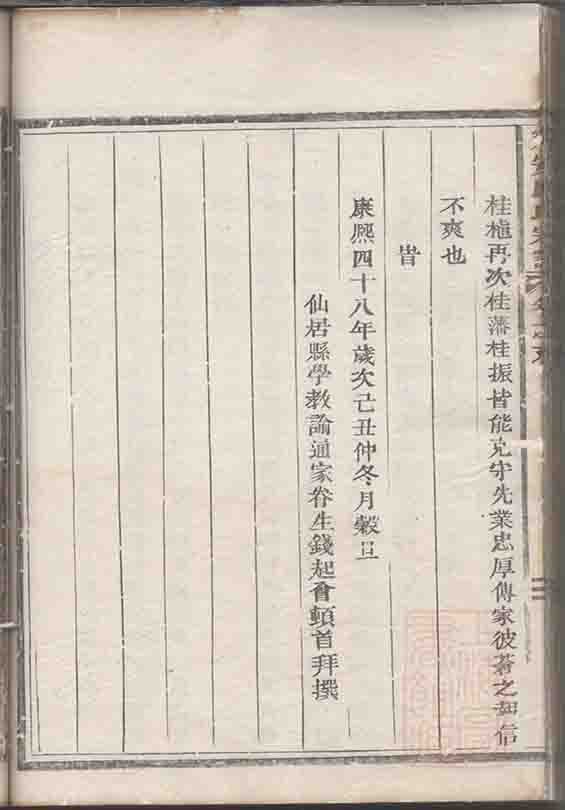 桂植再次桂藩桂振皆能克守先業忠厚傳家彼蒼之報信
不爽也
旹
康熙四十八年歲次己丑仲冬月穀旦
仙居縣學教諭通家眷生錢起會頓首拜撰